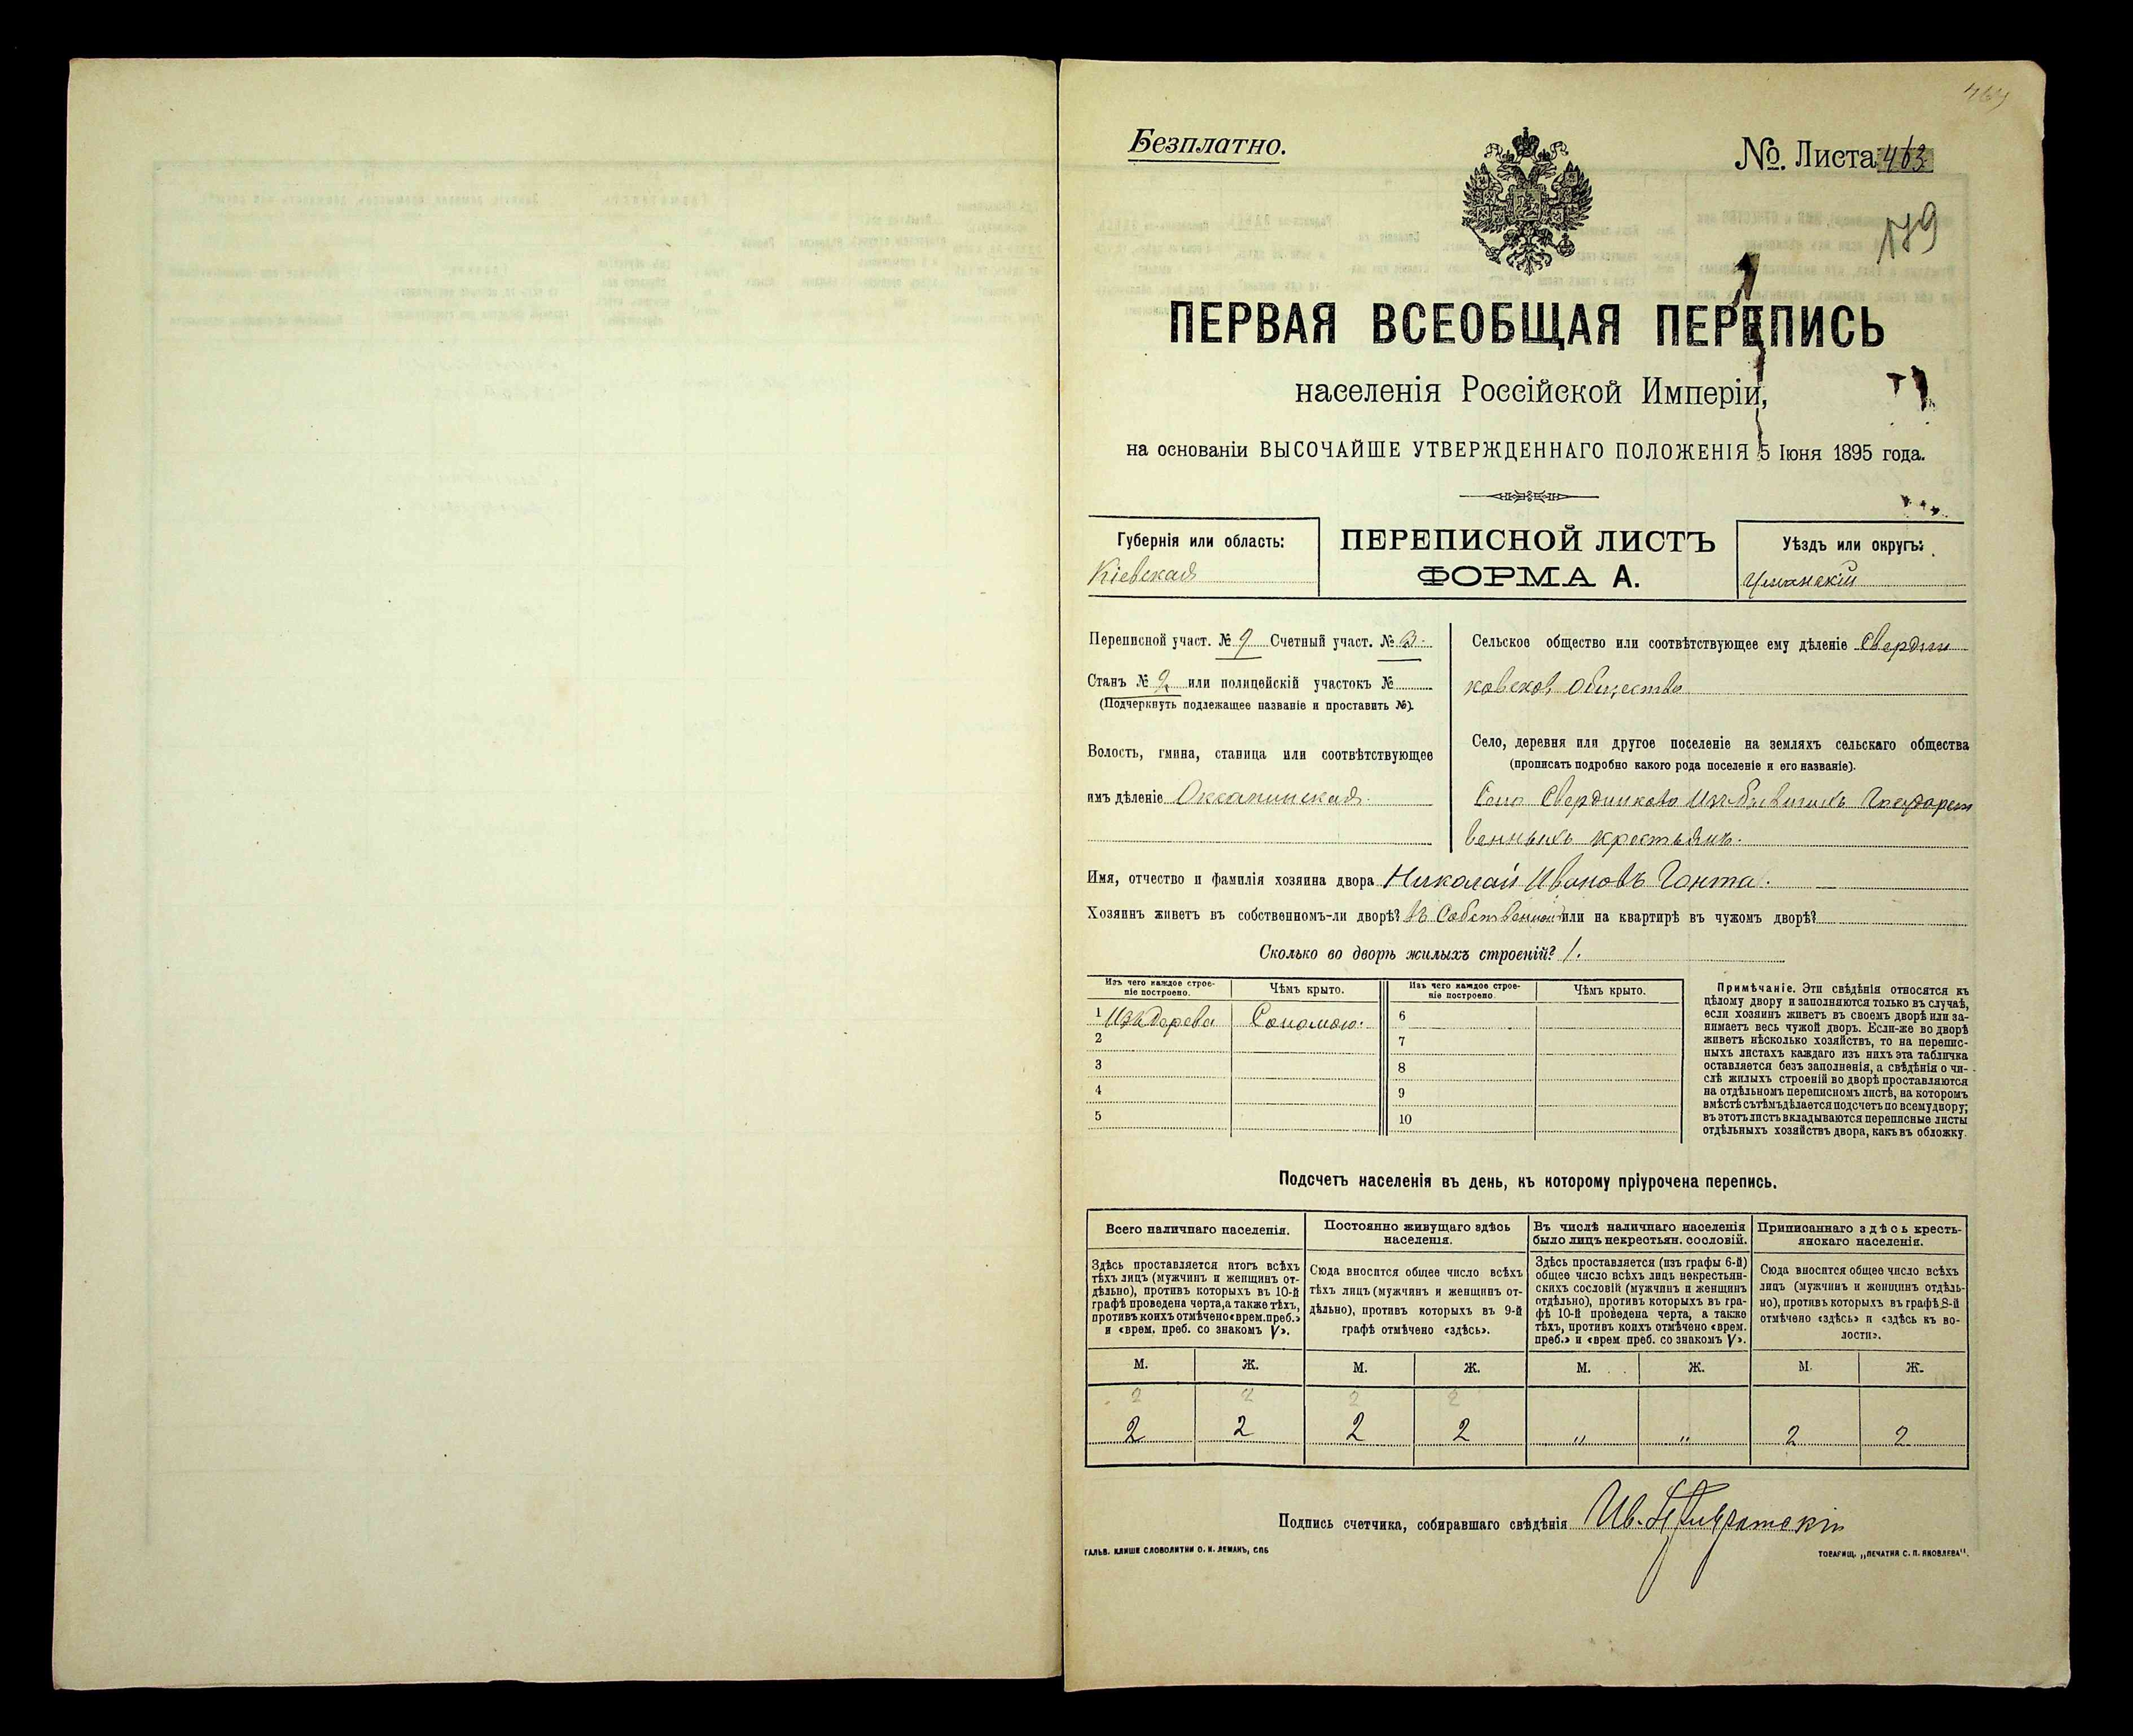 Безплатно.
№. Листа 463
179
ПЕРВАЯ ВСЕОБЩАЯ ПЕРЕПИСЬ
населенія Россійской Имперіи,
на основаніи ВЫСОЧАЙШЕ УТВЕРЖДЕННАГО ПОЛОЖЕНІЯ 5 Іюня 1895 года.
Губернія или область:
Кіевская
ПЕРЕПИСНОЙ ЛИСТЪ
ФОРМА А.
Уѣздъ или округъ:
Уманскій
Переписной участ. № 9 Счетный участ. № 3.
Станъ № 2 или полицейскій участокъ №
(Подчеркнуть подлежащее названіе и проставить №).
Волость, гмина, станица или соотвѣтствующее
имъ дѣленіе Оксанинская.
Сельское общество или соотвѣтствующее ему дѣленіе Свердли
ковское общество
Село, деревня или другое поселеніе на земляхъ сельскаго общества
(прописать подробно какого рода поселеніе и его названіе).
Село Свердликово Изъ бывшихъ Государст
венныхъ крестьянъ.
Имя, отчество и фамилія хозяина двора Николай Ивановъ Гонта.
Хозяинъ живетъ въ собственномъ-ли дворѣ? Въ Собственномъ или на квартирѣ въ чужомъ дворѣ?
Сколько во дворѣ жилыхъ строеній? 1.
Изъ чего каждое строе-
ніе построено.
Чѣмъ крыто.
Изъ чего каждое строе-
ніе построено.
Чѣмъ крыто.
1 Изъ Дерева Соломою. 6
2 7
3 8
4 9
5 10
Примѣчаніе. Эти свѣдѣнія относятся къ
цѣлому двору и заполняются только въ случаѣ,
если хозяинъ живетъ въ своемъ дворѣ или за-
нимаетъ весь чужой дворъ. Если-же во дворѣ
живетъ нѣсколько хозяйствъ, то на перепис-
ныхъ листахъ каждаго изъ нихъ эта табличка
оставляется безъ заполненія, а свѣдѣнія о чи-
слѣ жилыхъ строеній во дворѣ проставляются
на отдѣльномъ переписномъ листѣ, на которомъ
вмѣстѣ съ тѣмъ дѣлается подсчетъ по всему двору;
въ этотъ листъ вкладываются переписные листы
отдѣльныхъ хозяйствъ двора, какъ въ обложку.
Подсчетъ населенія въ день, къ которому пріурочена перепись.
Всего наличнаго населенія.
Здѣсь проставляется итогъ всѣхъ
тѣхъ лицъ (мужчинъ и женщинъ от-
дѣльно), противъ которыхъ въ 10-й
графѣ проведена черта, а также тѣхъ,
противъ коихъ отмѣчено «врем. преб.»
и «врем. преб. со знакомъ V».
Постоянно живущаго здѣсь
населенія.
Сюда вносится общее число всѣхъ
тѣхъ лицъ (мужчинъ и женщинъ от-
дѣльно), противъ которыхъ въ 9-й
графѣ отмѣчено «здѣсь».
Въ числѣ наличнаго населенія
было лицъ некрестьян. сословій.
Здѣсь проставляется (изъ графы 6-й)
общее число всѣхъ лицъ некрестьян-
скихъ сословій (мужчинъ и женщинъ
отдѣльно), противъ которыхъ въ гра-
фѣ 10-й проведена черта, а также
тѣхъ, противъ коихъ отмѣчено «врем.
преб.» и «врем преб. со знакомъ V».
Приписаннаго здѣсь кресть-
янскаго населенія.
Сюда вносится общее число всѣхъ
лицъ (мужчинъ и женщинъ отдѣль-
но), противъ которыхъ въ графѣ 8-й
отмѣчено «здѣсь» и «здѣсь къ во-
лости».
М. Ж. М. Ж. М. Ж. М. Ж.
2 2 2 2
2 2 2 2 " " 2 2
Подпись счетчика, собиравшаго свѣдѣнія Ив.
ГАЛЬВ. КЛИШЕ СЛОВОЛИТНИ О. И. ЛЕМАНЪ, СПБ
ТОВАРИЩ. „ПЕЧАТНЯ С. П. ЯКОВЛЕВА".